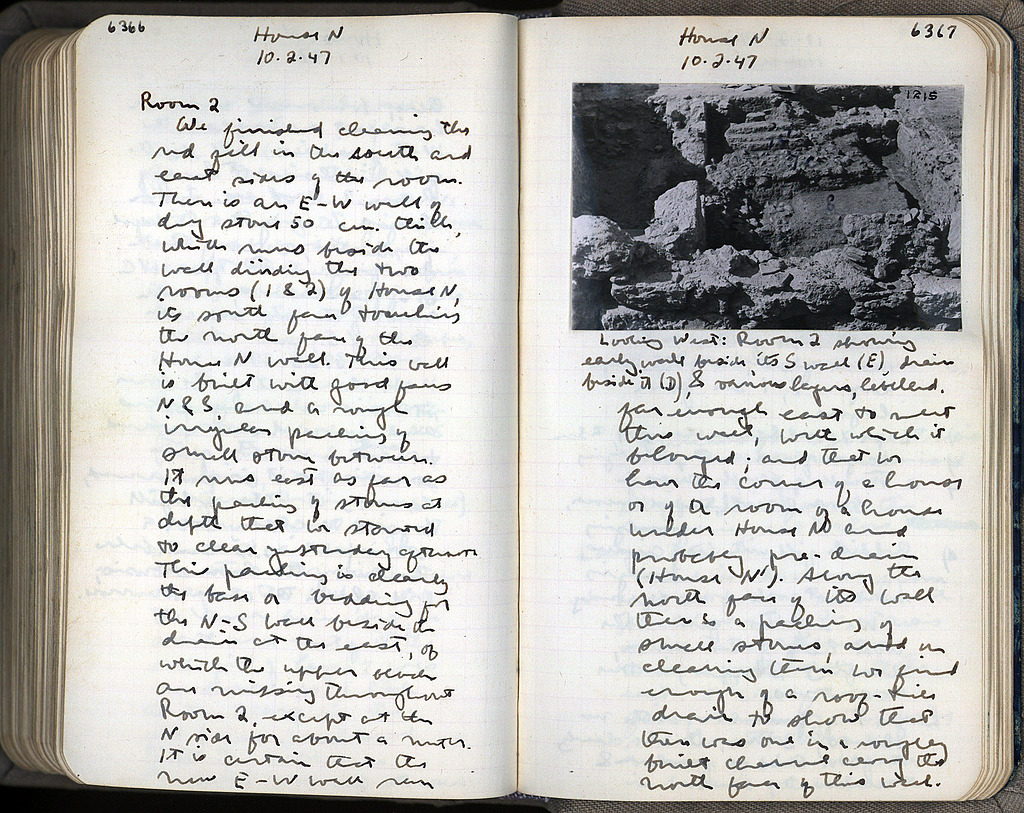 6366
House N
10.2.47
Room 2
We finished cleaning the
red fill in the south and
east sides of the room.
There is an E-W wall of
dry stone 50 cm. thick,
which runs beside the
wall dividing the two
rooms (1 & 2) of House N,
its south face touching
the north face of the
House N wall. This wall
is built with good faces
N & S, and a rough
irregular packing of
small stones between.
It runs east as far as
the packing of stones at
depth that we started
to clear yesterday afternoon
This packing is clearly
the base or bedding for
the N-S wall beside the
drain at the east, of
which the upper
are missing throughout
Room 2, except at the
N side for about a meter.
It is certain that the
new E-W wall ran
6367
House N
10.2.47
1215
Looking West: Room 2 showing
early wall beside its S wall (E), drain
beside it (D), & various layers, labelled.
far enough east to meet
this wall, with which it
belonged; and that we
have the corner of a house
or of a room of a house
under House N and
probably pre-drain
(House N'). Along the
north face of this wall
there is a packing of
small stones, and in
cleaning them we find
enough of a roof-tile
drain to show that
there was one in a roughly
built channel along the
north face of this wall.